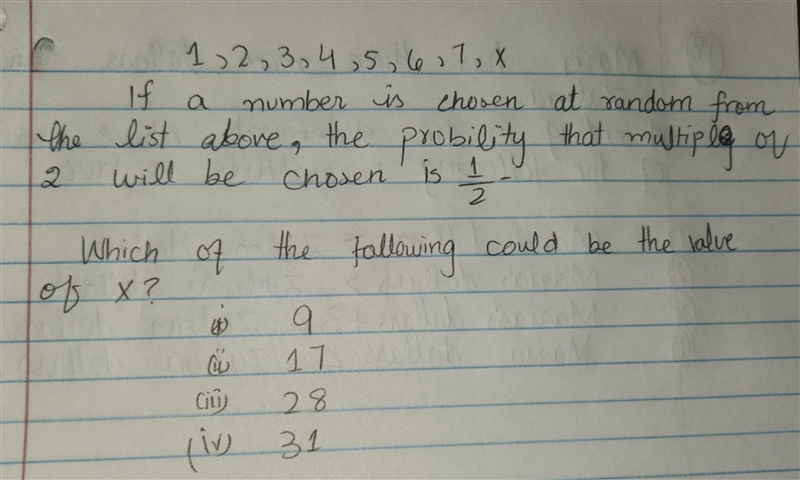 1, 2, 3, 4, 5, 6, 7, x
If a number is chosen at random from
the list above, the probility that multiple of
2 will be chosen is 1/2 -
Which of the following could be the value
of x?
(i) 9
(ii) 17
(iii) 28
(iv) 31